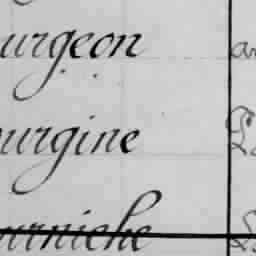 urgeon
urgine
urniche